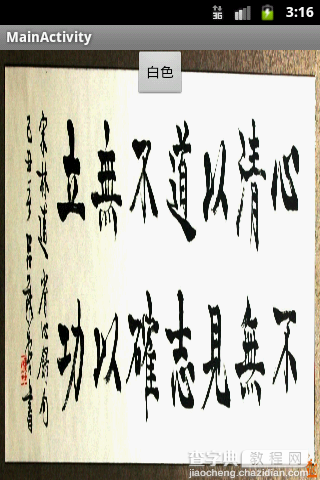 3G 3:16
MainActivity
白色
心不
清無
以見
道志
不確
無以
立功
宋林逋省心錄句
查字典 教程网
jiaocheng.chazidian.com